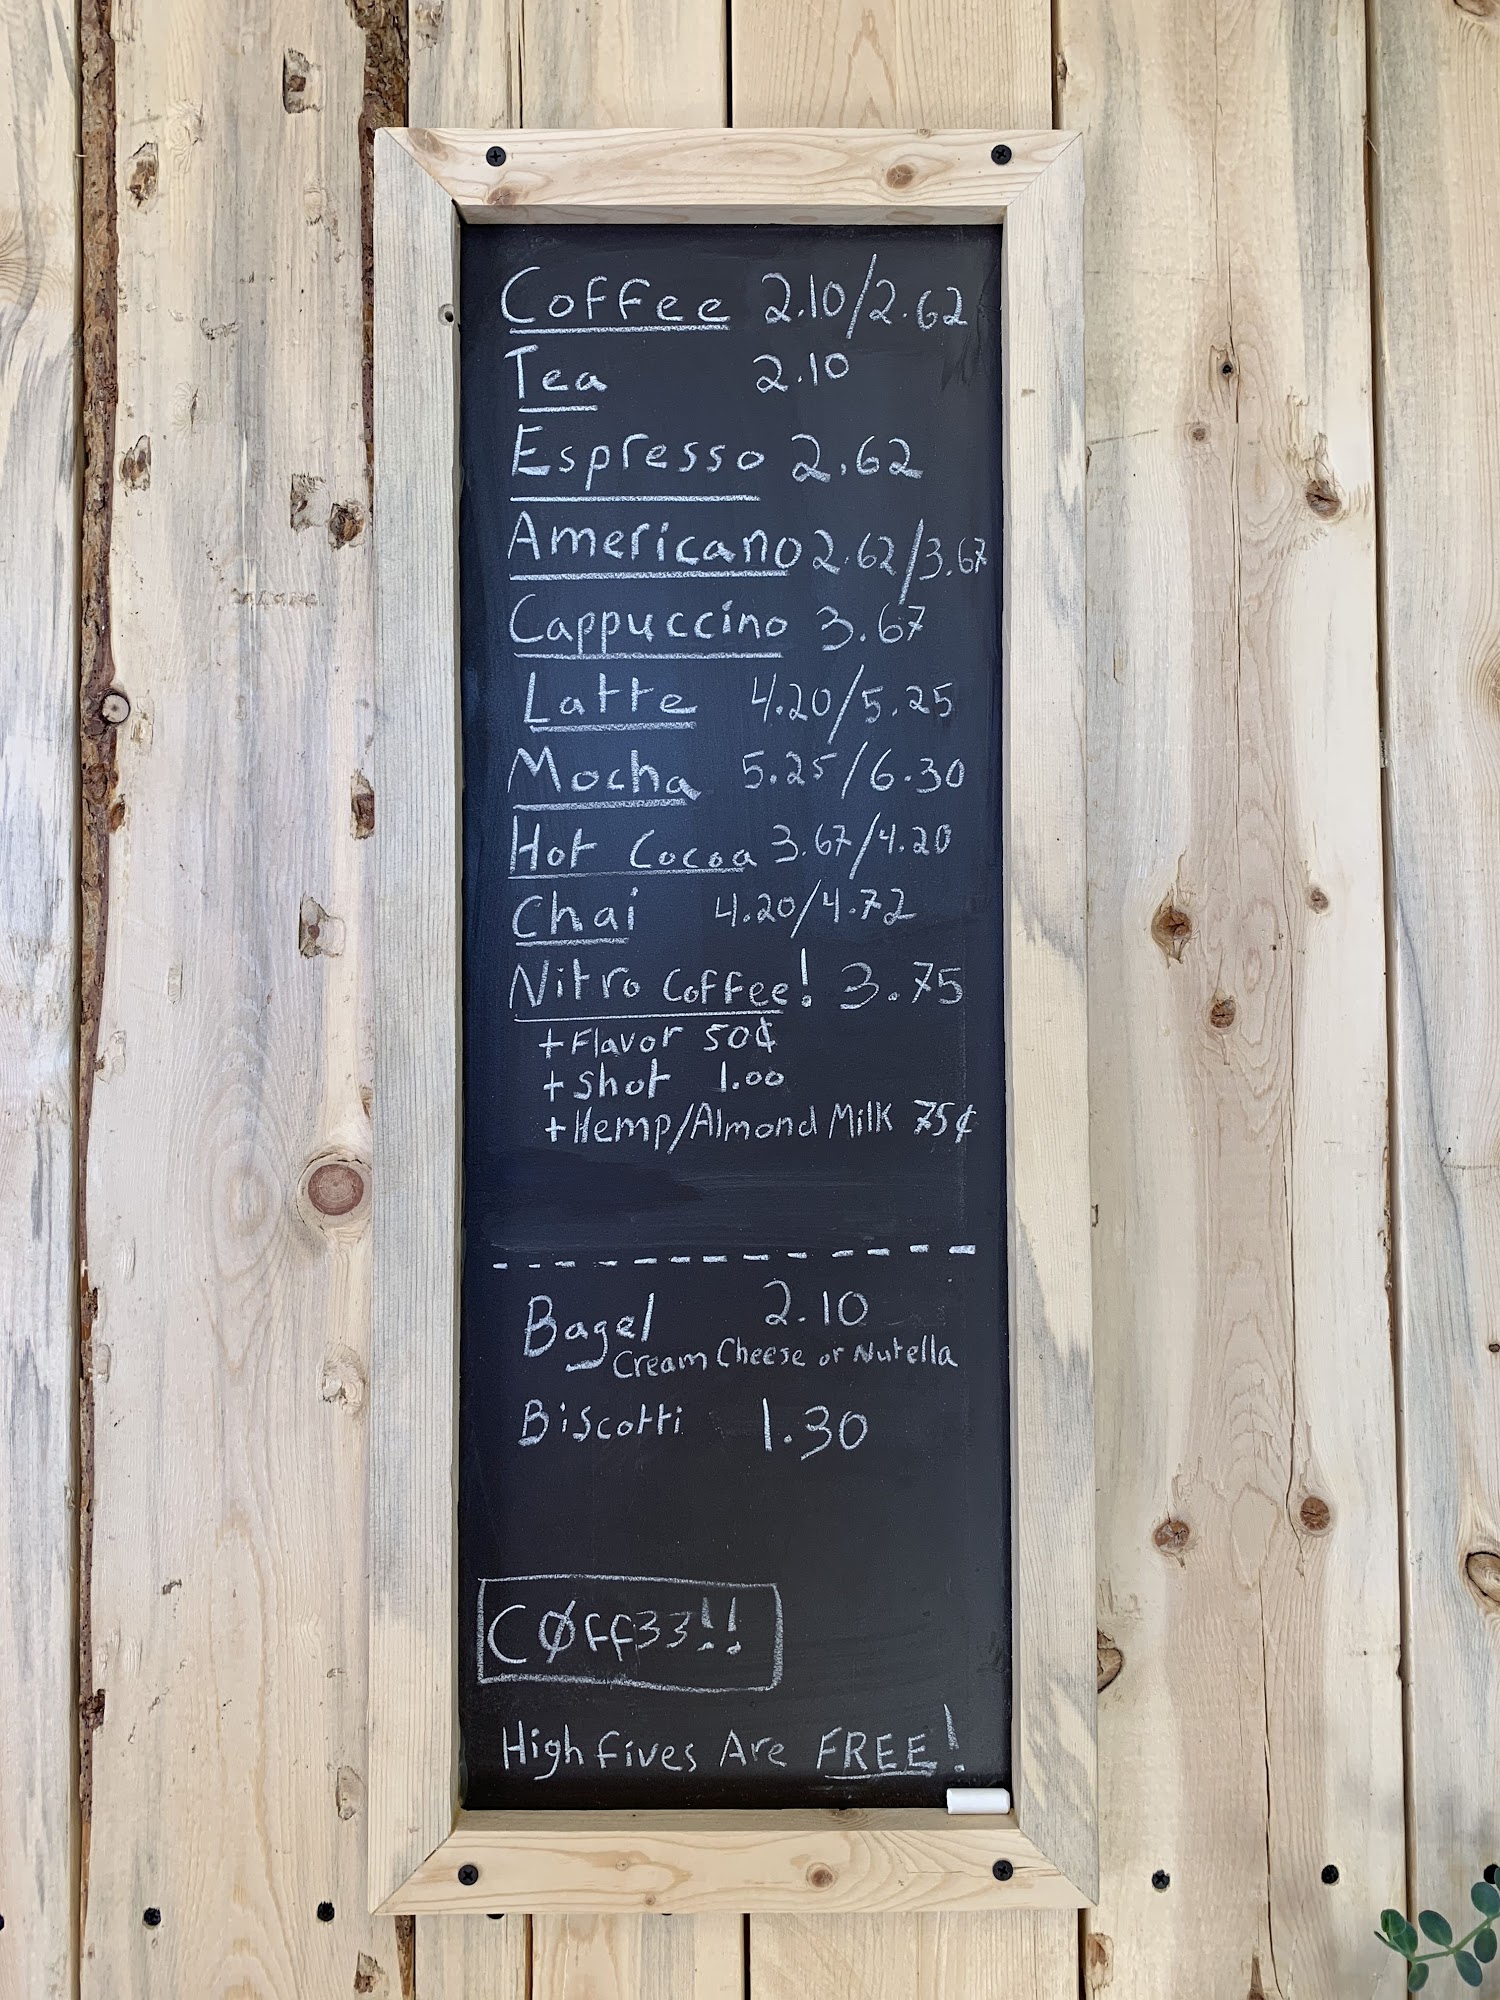 Coffee 2.10/2.62
Tea 2.10
Espresso 2.62
Americano 2.62/3.67
Cappuccino 3.67
Latte 4.20/5.25
Mocha 5.25/6.30
Hot Cocoa 3.67/4.20
Chai 4.20/4.72
Nitro Coffee! 3.75
+Flavor 50¢
+Shot 1.00
+Hemp/Almond Milk 75¢
Bagel 2.10
Cream Cheese or Nutella
Biscotti 1.30
CØFF33!!
High Fives Are FREE!